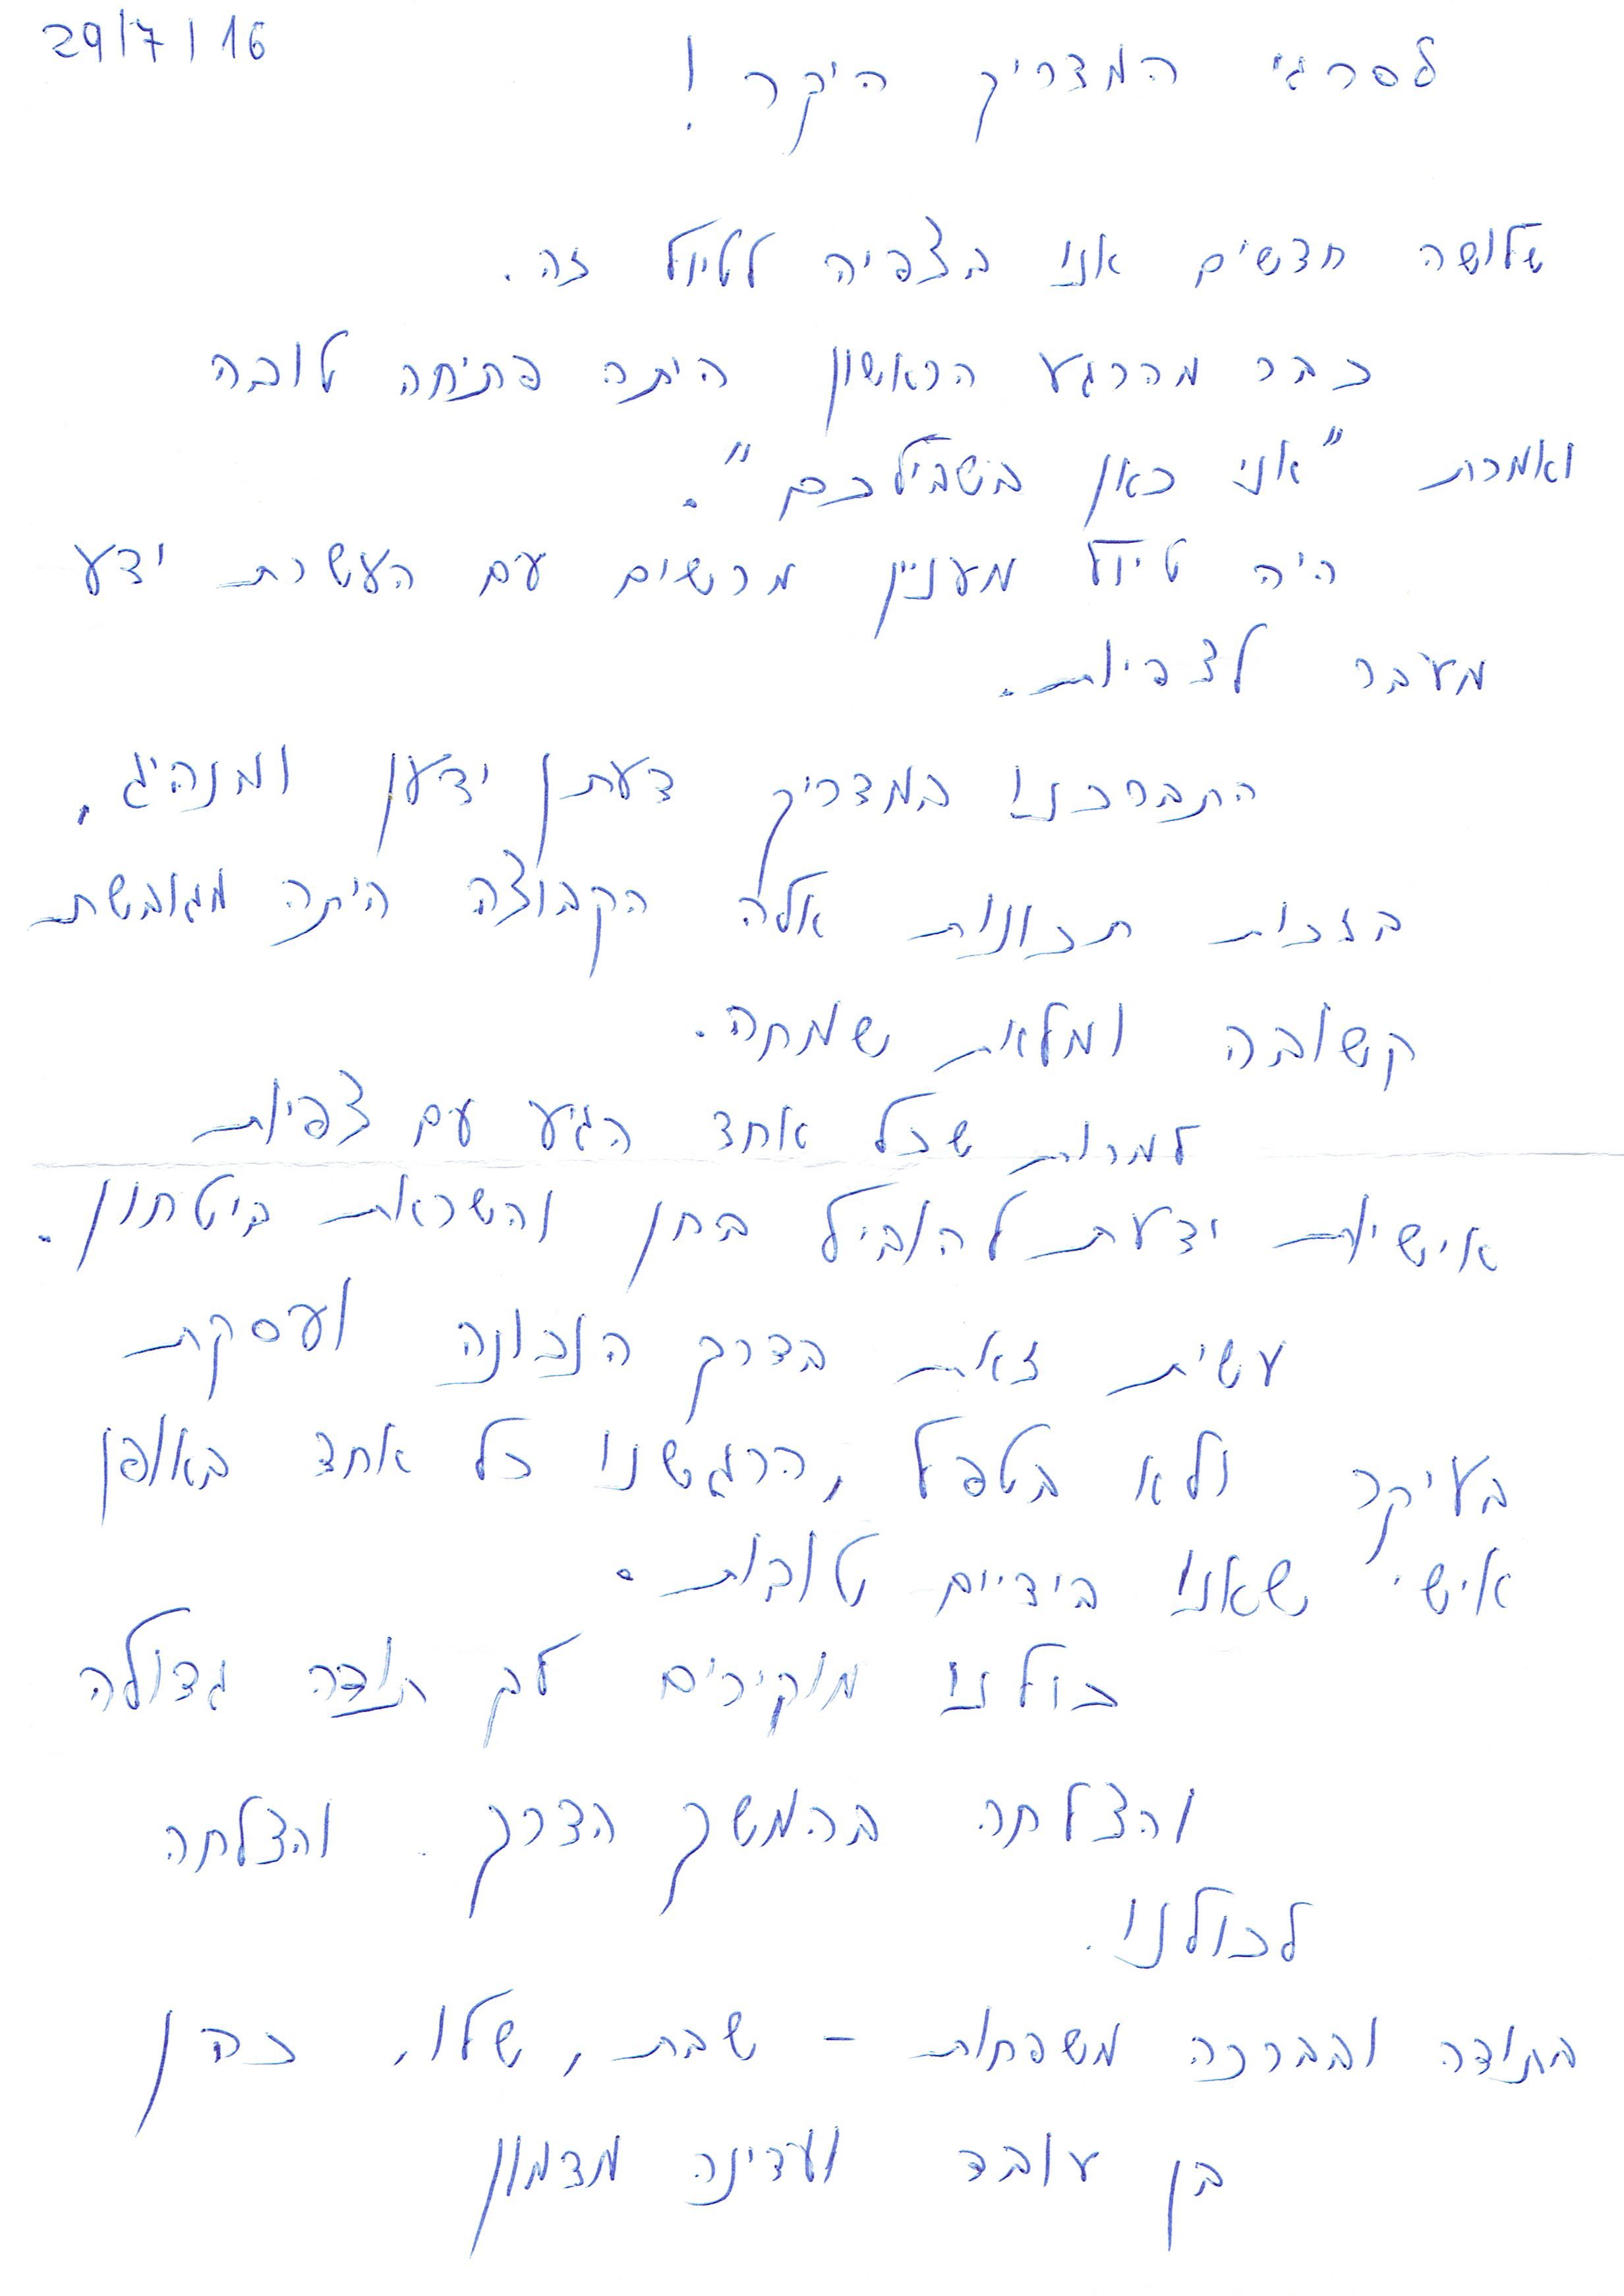 29/7/16
לסרגי המדריך היקר!
שלושה חדשים אני בצפיה לטיול זה.
כבר מהרגע הראשון היתה פתיחה טובה
ואמרת "אני כאן בשבילכם".
היה טיול מעניין מרשים עם העשרת ידע
מעבר לצפיות.
התברכנו במדריך דעתן ידען ומנהיג,
בזכות תכונות אלה הקבוצה היתה מגובשת
קשובה ומלאת שמחה.
למרות שכל אחד הגיע עם צפיות
אישיות ידעת להוביל בחן והשראת ביטחון.
עשית זאת בדרך הנכונה ועסקת
בעיקר ולא בטפל, הרגשנו כל אחד באופן
אישי שאנו בידיים טובות.
כולנו מוקירים לך תודה גדולה
והצלחה בהמשך הדרך. והצלחה
לכולנו.
בתודה ובברכה משפחות - שבת, שלו, כהן
בן עובד ועדינה מדמון